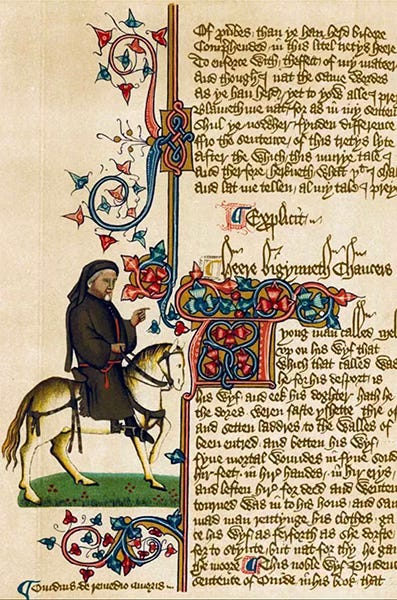 than ye han herd bifore
Comprehended in this litel tretys heere
To enforce with theffect of my mateere
And though I nat the same wordes
As ye han herd / yet to yow alle I prey
Blameth me nat for as in my senten
Shul ye nowher fynden difference
Fro the sentence of this tretys lyte
After the which this murye tale I
And therfore herkneth what þt I sha
And lat me tellen al my tale I prey
Explicit
Heere bigynneth Chaucers
yong man called mel
vp on his wyf that
which that called was
he for his desport is
his wyf and eek his doghter hath he
the dores weren faste yshette of
and setten laddres to the walles of
been entred and betten his wyf
fyue mortal woundes in fyue sond
hir feet in hir handes in hir erys
and leften hir for deed and wenten
torned was in to his hous and sau
mad man rentynge his clothes ga
te his wyf as ferforth as she dorste
for to stynte but nat for thy he gan
the moore This noble wyf Pruden
sentence of Ouide in his book that
Ouidius de remedio amoris